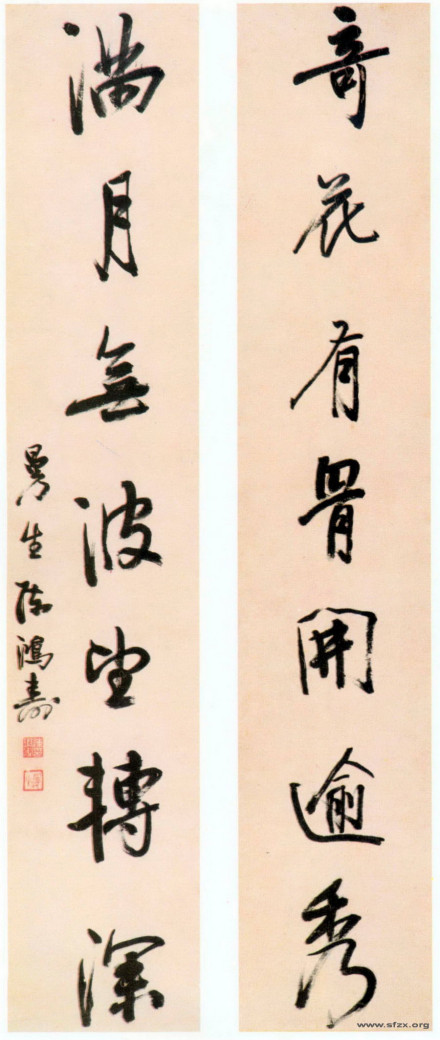 奇花有骨開逾秀
満月無波望轉深
曼生陳鴻壽
www.sfzx.org